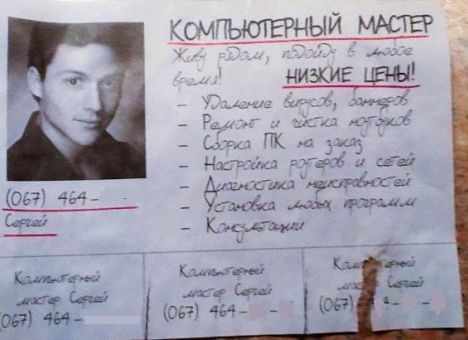 КОМПЬЮТЕРНЫЙ МАСТЕР
Живу рядом, подойду в любое
время! НИЗКИЕ ЦЕНЫ!
- Удаление вирусов, баннеров
- Ремонт и чистка ноутбуков
- Сборка ПК на заказ
- Настройка роутеров и сетей
- Диагностика неисправностей
- Установка любых программ
- Консультации
(067) 464-
Сергей
Компьютерный
мастер Сергей
(067) 464-
Компьютерный
мастер Сергей
(067) 464-
мастер Сергей
(067)